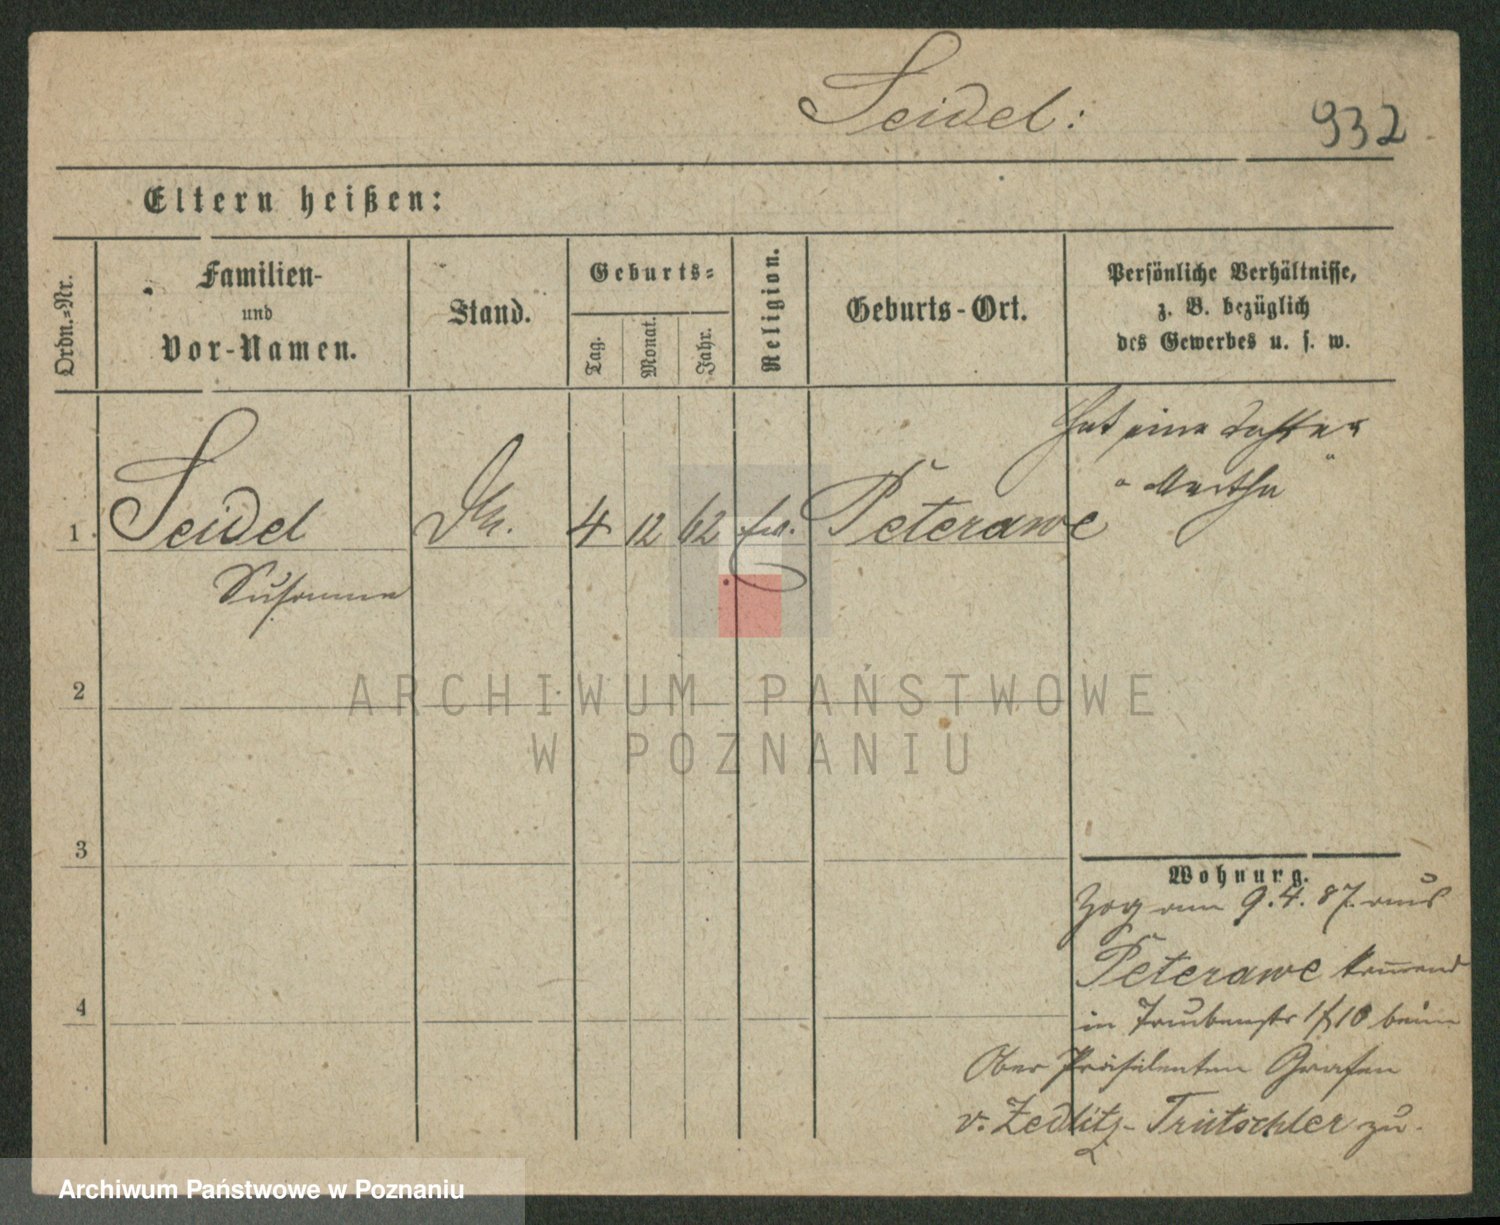 Seidel:
932
Eltern heißen:
Ordn.-Nr.
Familien-
und
Vor-Namen.
Stand.
Geburts-
Tag.
Monat.
Jahr.
Religion.
Geburts-Ort.
Persönliche Verhältnisse,
z. B. bezüglich
des Gewerbes u. s. w.
Hat eine Tochter
Martha
1 Seidel 4 12 62 Peterawe
Susanna
2
3
4
Wohnung.
Zog am 9.4.87. aus
Peterawe kommend
in 10 beim
Ober Präsidenten Grafen
v. Zedlitz-Trütschler zu.
ARCHIWUM PAŃSTWOWE
W POZNANIU
Archiwum Państwowe w Poznaniu